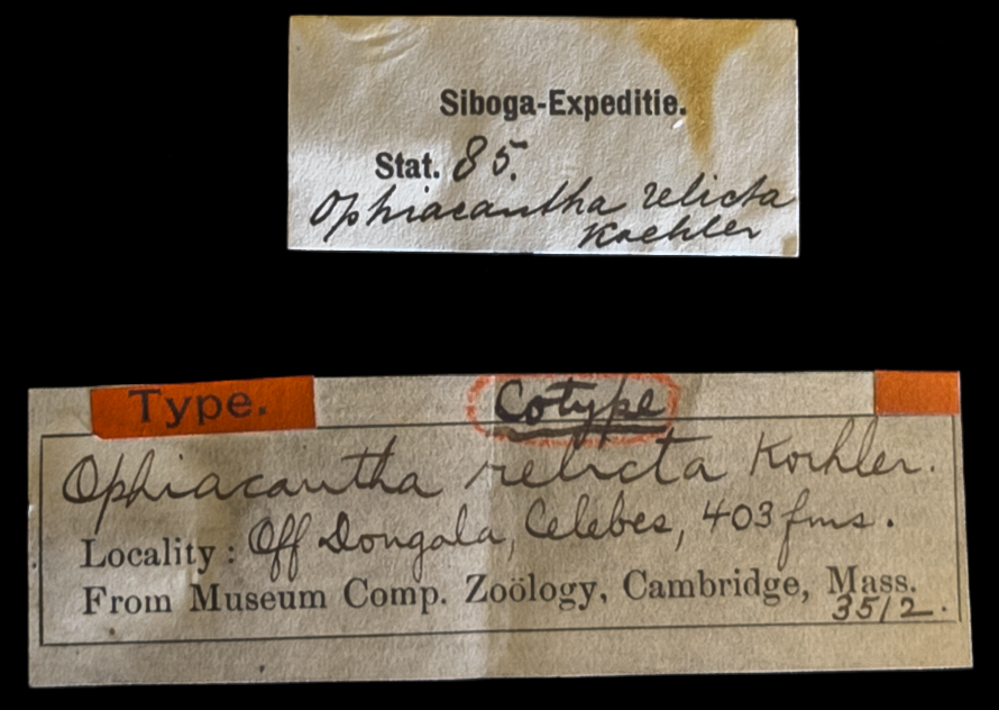 Siboga-Expeditie.
Stat. 85.
Ophiacantha relicta
Koehler
Type.
Cotype
Ophiacantha relicta Koehler.
Locality: Off Dongala, Celebes, 403 fms.
From Museum Comp. Zoölogy, Cambridge, Mass.
3512.